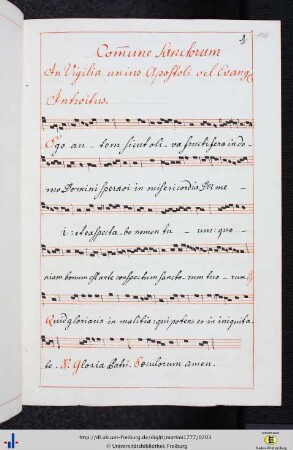 Com̄une Sanctorum
In Vigilia unius Apostoli vel Evang.
Introitus.
Ego au- tem sicut oli- va fructifera in do-
mo Domini speravi in misericordia Dei me-
i: et exspecta- bo nomen tu- um: quo-
niam bonum est ante conspectum sancto- rum tuo- rum.
Quid gloriaris in malitia: qui potens es in iniquita-
te. V. Gloria Patri. Sæculorum amen.
http://dl.ub.uni-freiburg.de/diglit/martini1777/0203
© Universitätsbibliothek Freiburg
Baden-Württemberg